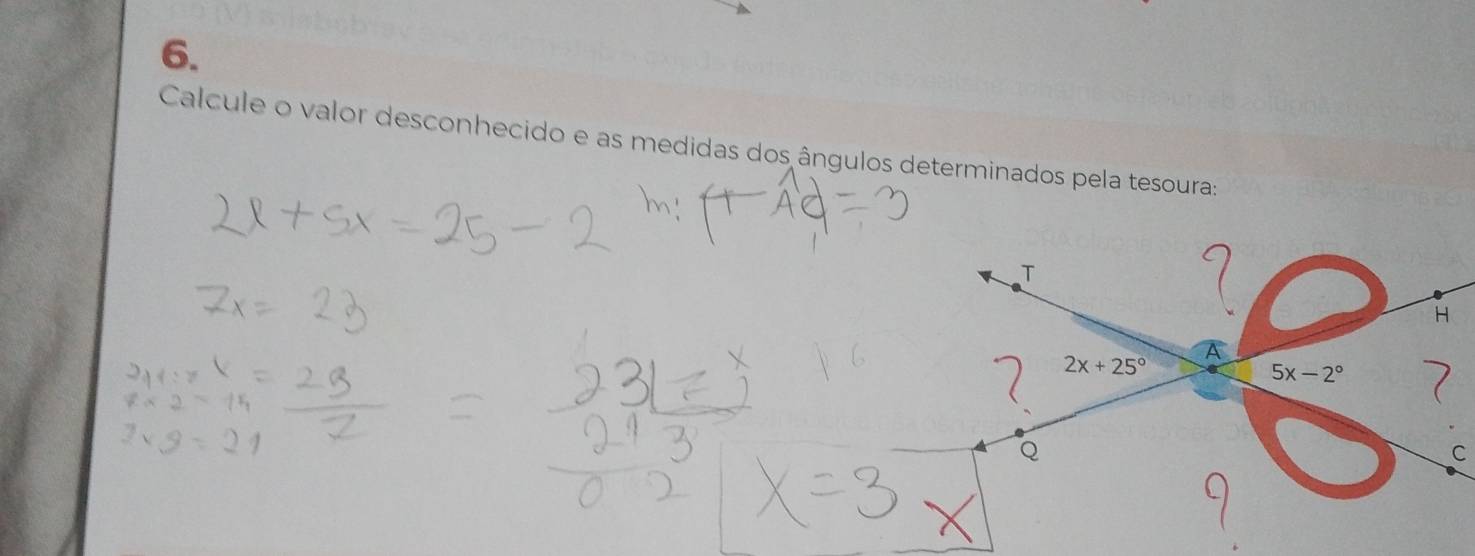 6.
Calcule o valor desconhecido e as medidas dos ângulos determinados pela tesoura:
2x + 5x = 25 - 2
m:
= 3
7x = 23
x = 23/7 =
7 x 2 = 14
7 x 3 = 21
23 7
21 3
0 2
x = 3 x
T
?
H
A
2x + 25°
5x − 2°
?
?
Q
C
?